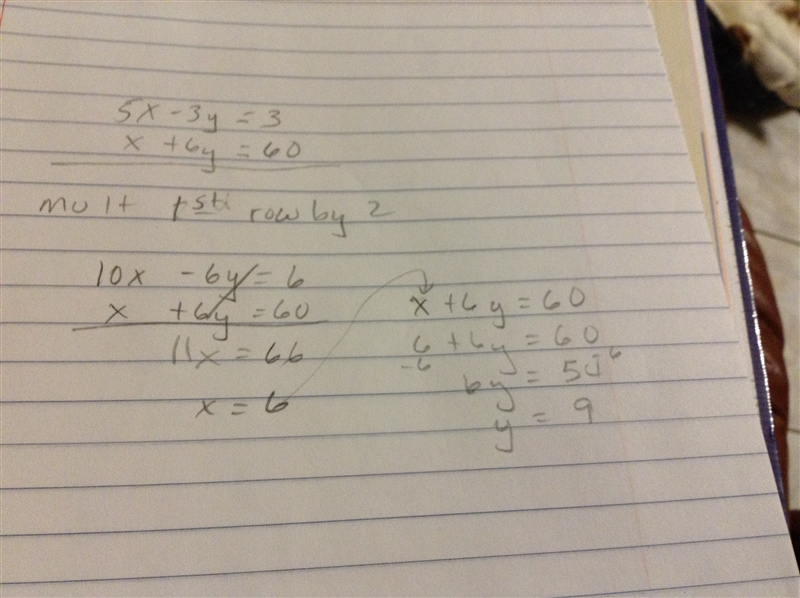 5x - 3y = 3
x + 6y = 60
mult 1st row by 2
10x - 6y = 6
x + 6y = 60
11x = 66
x = 6
x + 6y = 60
6 + 6y = 60
-6 -6
6y = 54
y = 9